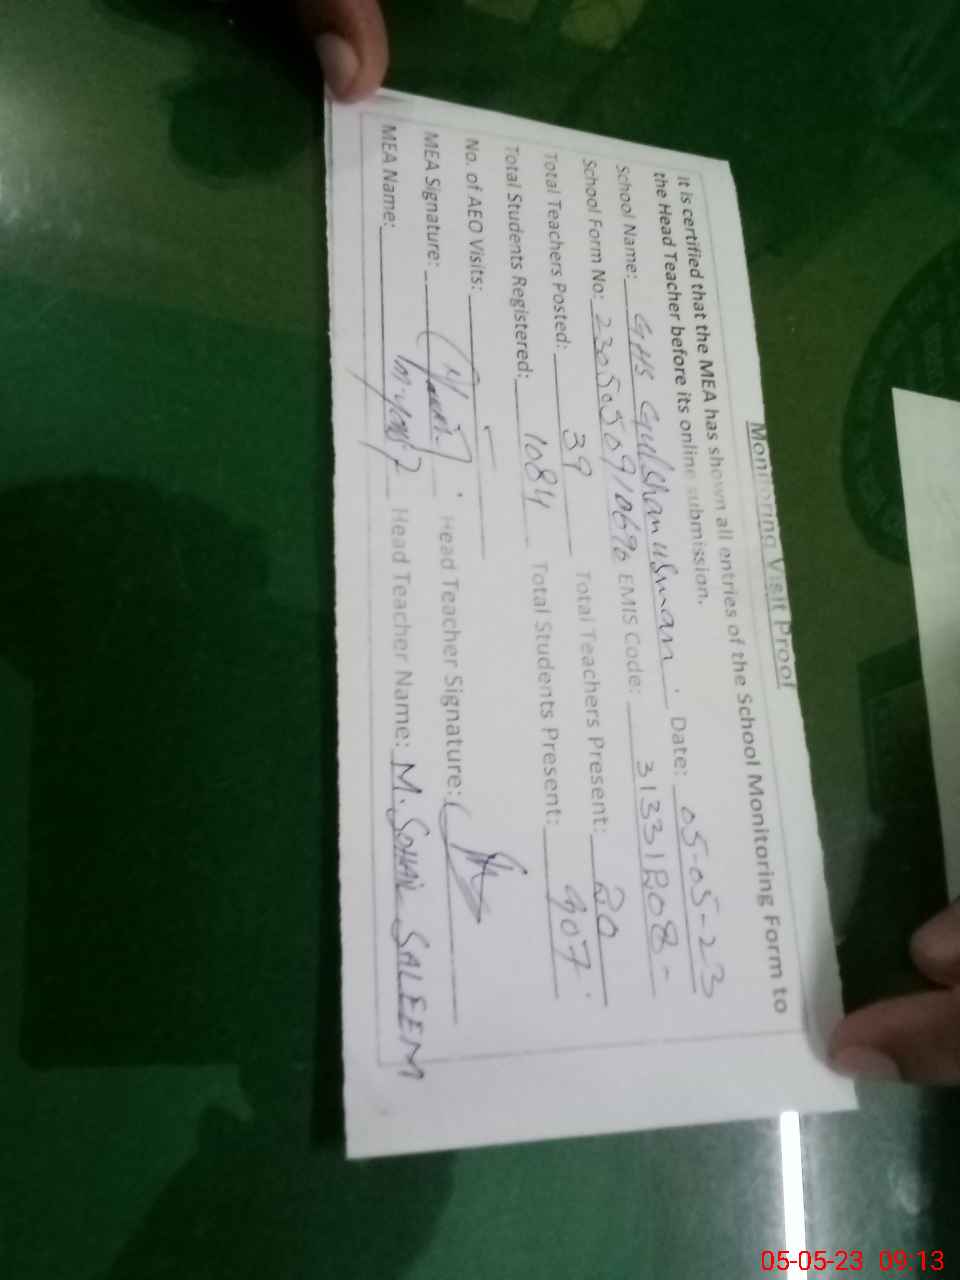 Monitoring Visit Proof
It is certified that the MEA has shown all entries of the School Monitoring Form to
the Head Teacher before its online submission.
School Name: GHS Gulshan usman. Date: 05-05-23
School Form No: 230505091069 EMIS Code: 31331208-
Total Teachers Posted: 39 Total Teachers Present: 20
Total Students Registered: 1084 Total Students Present: 907.
No. of AEO Visits:
MEA Signature: Head Teacher Signature:
MEA Name: Head Teacher Name: M. SOHAIL SALEEM
05-05-23 09:13